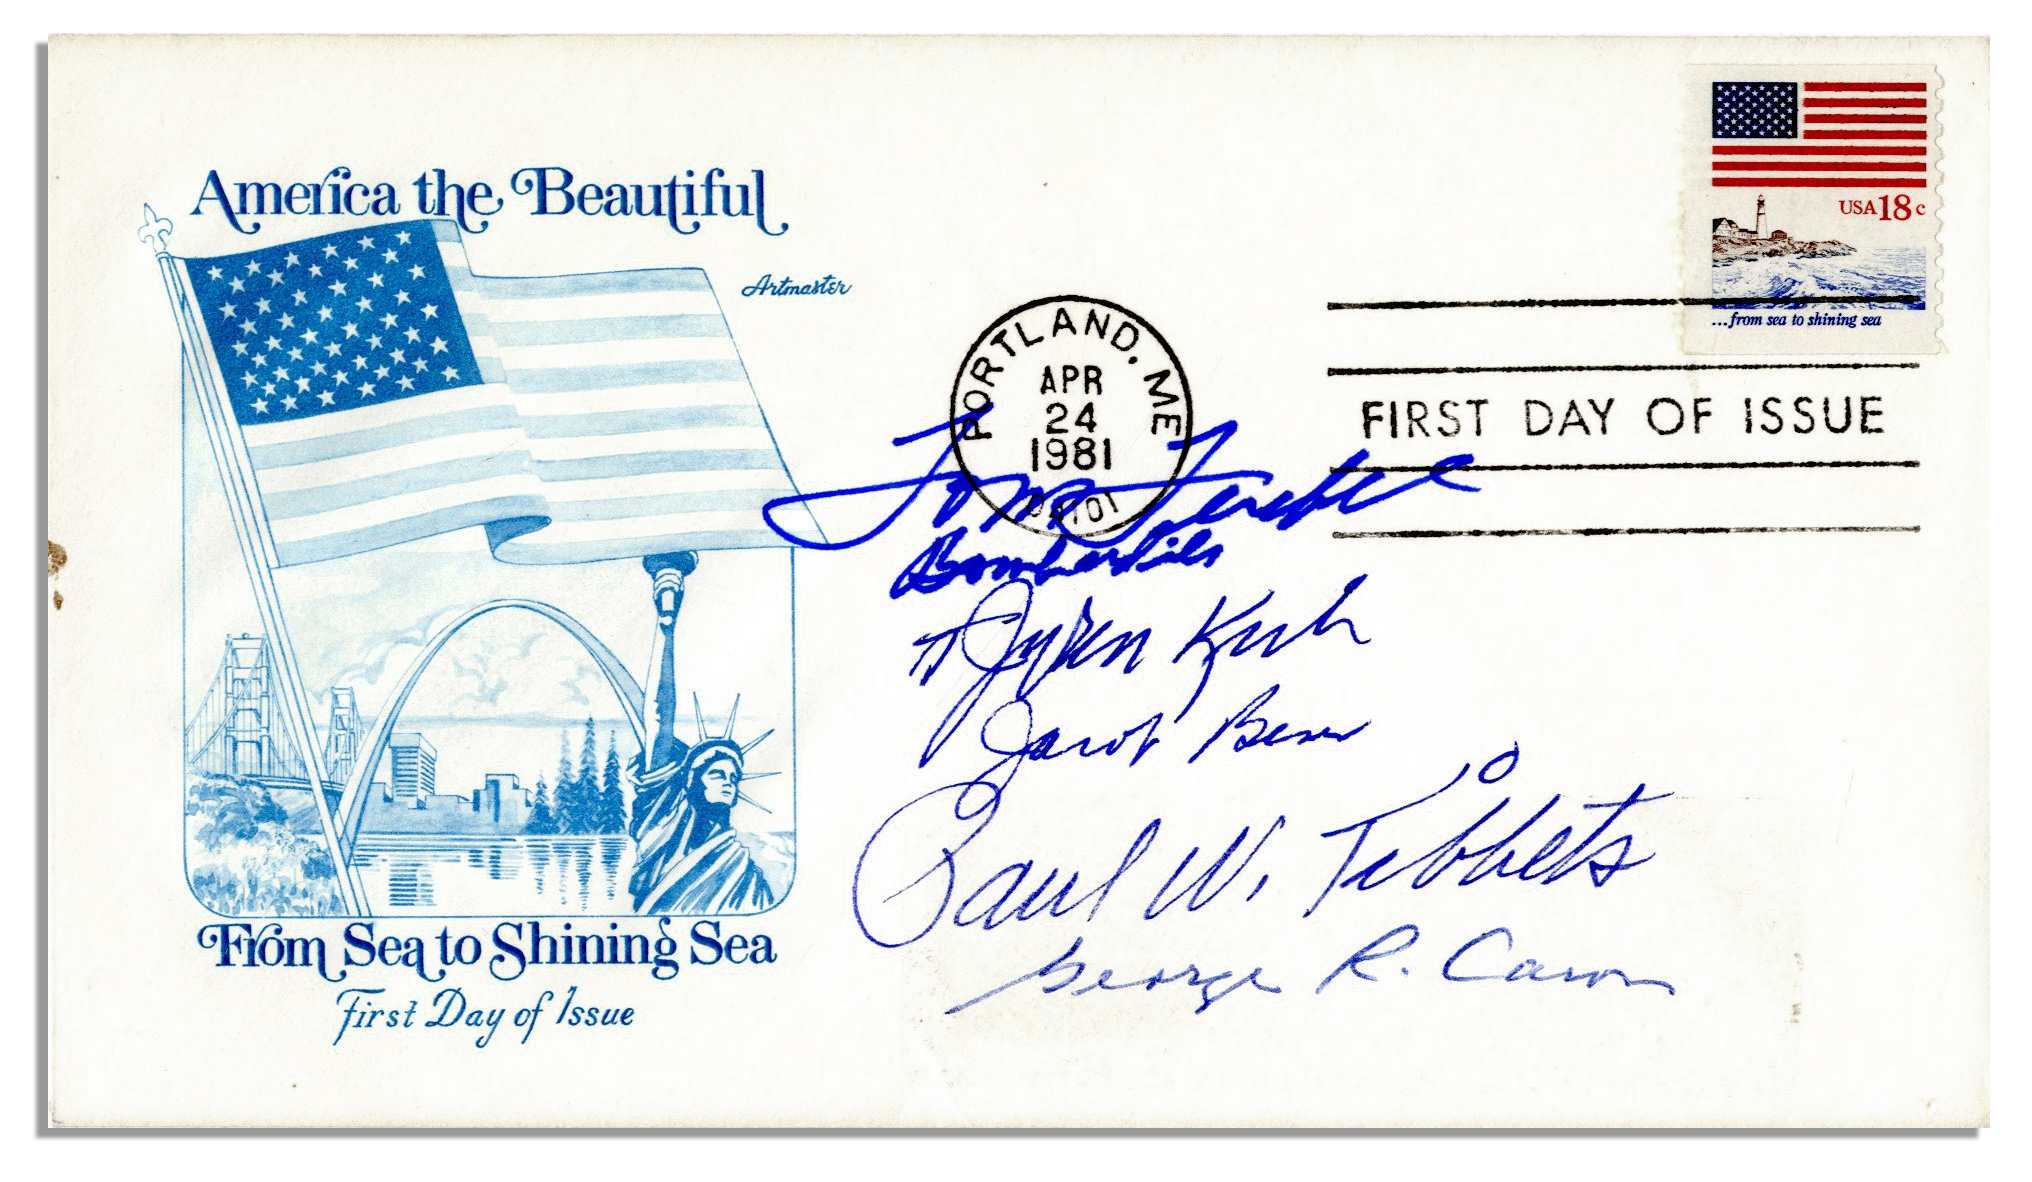 America the Beautiful
Artmaster
USA 18c
...from sea to shining sea
PORTLAND, ME
APR
24
1981
04101
FIRST DAY OF ISSUE
Tom Ferebee
Bombardier
Jacob Beser
Paul W. Tibbets
George R. Caron
From Sea to Shining Sea
First Day of Issue